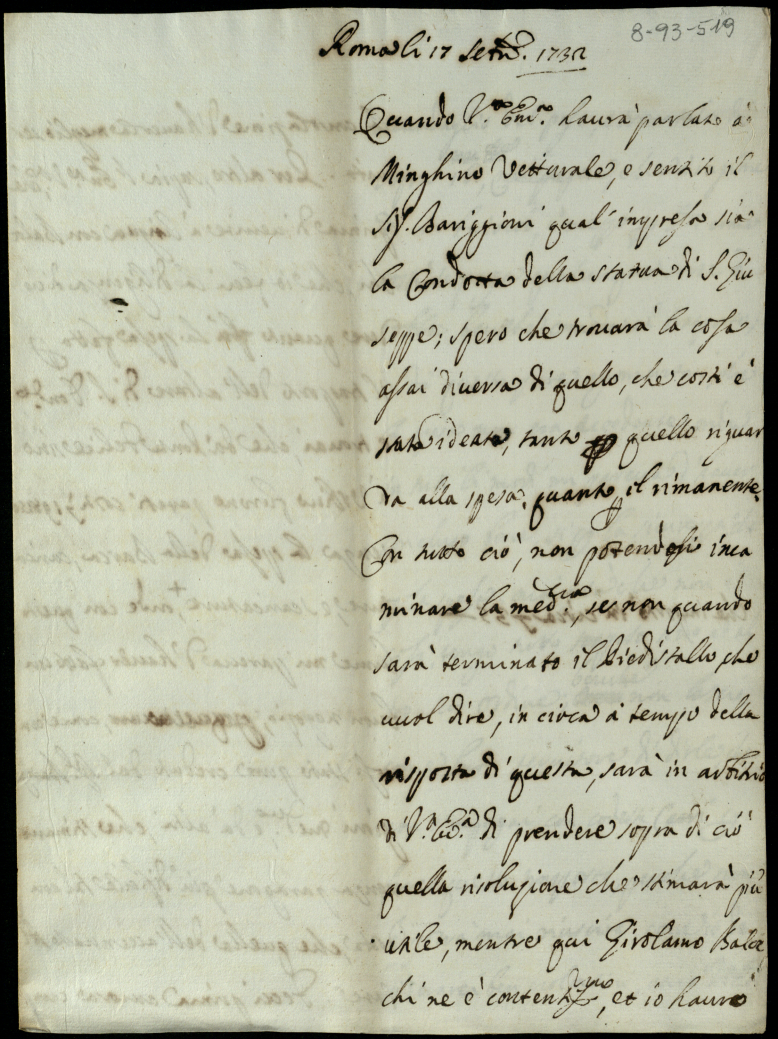 8-93-519
Roma li 17 Setre. 1732
Quando V.ra Emza. haurà parlato à
Minghino Vetturale, e sentito il
Sig. Bariggioni qual' impresa sia
la Condotta della statua di S. Giu
seppe; spero che trouarà la cosa
assai diuersa di quello, che costì è
stata ideata, tanto p quello riguar
da alla spesa, quanto p il rimanente.
Con tutto ciò, non potendosi inca
minare la medma., se non quando
sarà terminato il Piedistallo, che
uuol dire, in circa à tempo della
risposta di questa, sarà in arbitrio
di V.a Em.a di prendere sopra di ciò
quella risoluzione che stimarà più
utile, mentre qui Girolamo Balec
chi ne è contentissmo, et io hauro